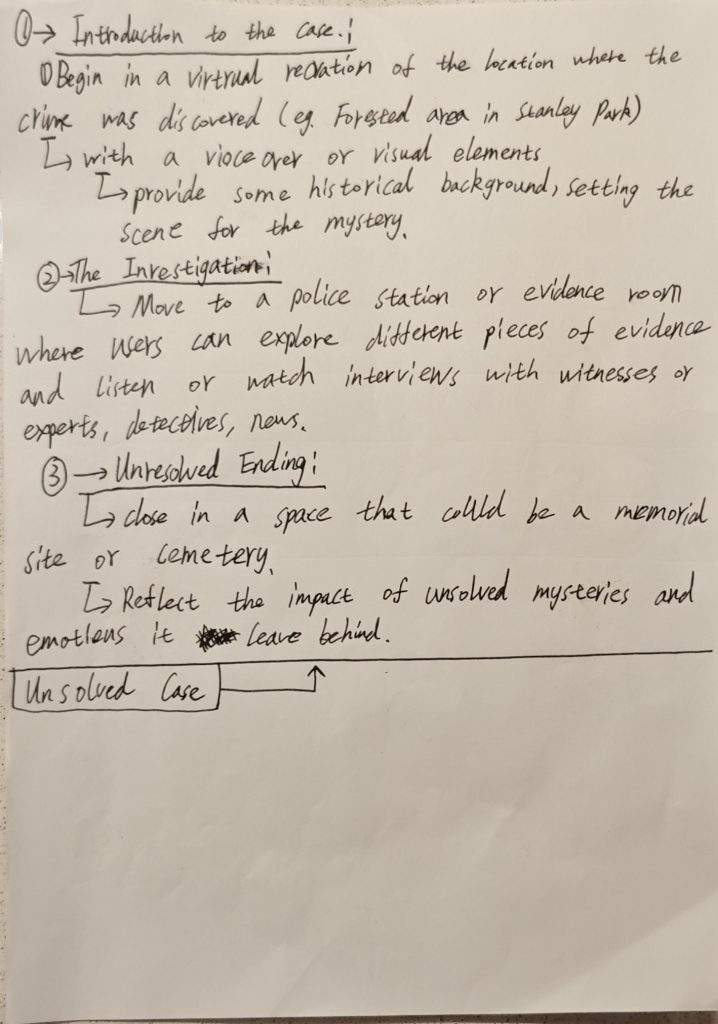 ① → Introduction to the case.:
① Begin in a virtrual recration of the location where the
crime was discovered (eg. Forested area in Stanley Park)
↳ with a vioce over or visual elements
↳ provide some historical background, setting the
scene for the mystery.
② → The Investigation:
↳ Move to a police station or evidence room
where users can explore different pieces of evidence
and listen or watch interviews with witnesses or
experts, detectives, news.
③ → Unresolved Ending:
↳ close in a space that could be a memorial
site or cemetery.
↳ Reflect the impact of unsolved mysteries and
emotions it leave behind.
Unsolved Case